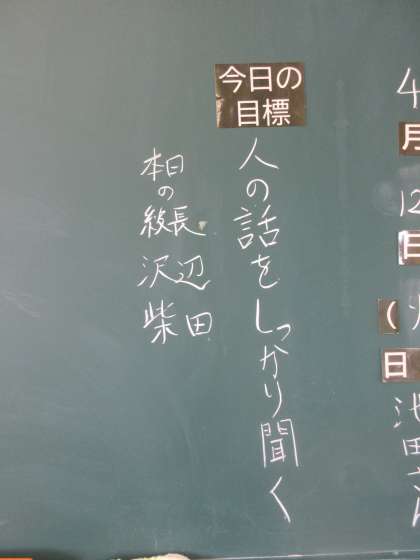 4月12日(
日
池田
今日の
目標
人の話をしっかり聞く
本日
の
級長
沢辺
柴田